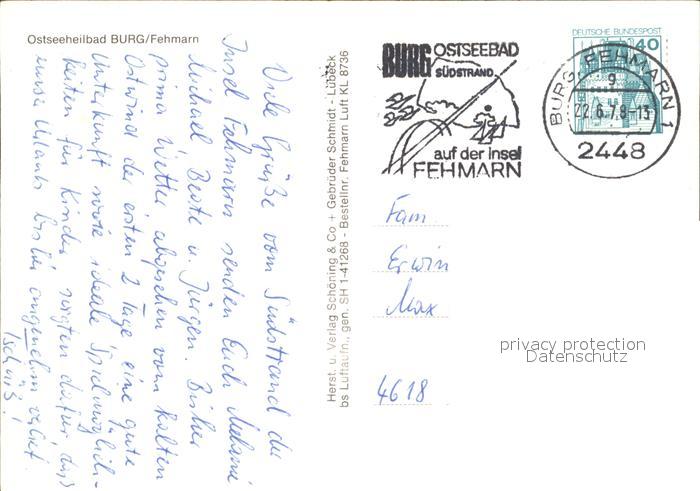 Ostseeheilbad BURG/Fehmarn
Viele Grüße vom Südstrand der
Insel Fehmarn senden Euch Melanie
Michael Beate u. Jürgen. Bisher
prima Wetter abgesehen vom kalten
Ostwind der ersten 2 Tage eine gute
Unterkunft sowie ideale Spielmöglich-
keiten für Kinder sorgten dafür, daß
unser Urlaub bisher angenehm verlief.
Tschüß!
Herst. u. Verlag Schöning & Co + Gebrüder Schmidt - Lübeck
bs Luftaufn., gen. SH 1-41268 - Bestellnr. Fehmarn Luft KL 8736
BURG OSTSEEBAD
SÜDSTRAND
auf der Insel
FEHMARN
DEUTSCHE BUNDESPOST
40
BURG, FEHMARN 1
g
22.6.78-13
2448
Fam.
Erwin
Max
privacy protection
Datenschutz
4618